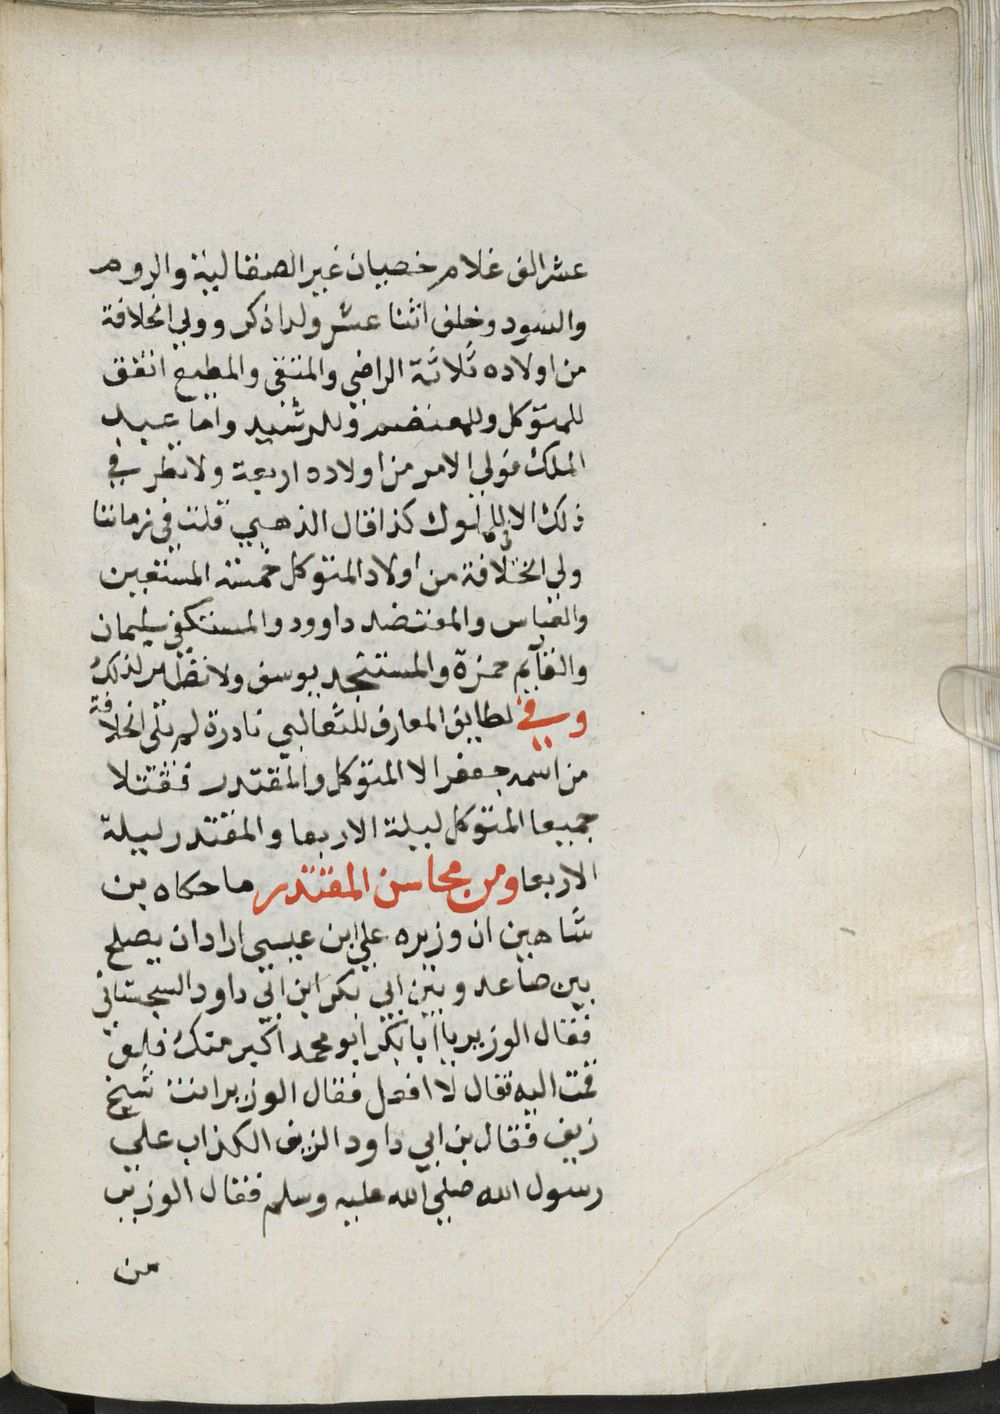 عشر الف غلام خصيان غير الصقالبة والروم
والسود وخلف اثنا عشر ولدا ذكر وولي الخلافة
من اولاده ثلاثة الراضي والمتقي والمطيع اتفق
للمتوكل وللمعتضم وللرشيد واما عبيد
الملك فولي الامر من اولاده اربعة ولا نظر في
ذلك الا للملوك كذا قال الذهبي قلت في زماننا
ولي الخلافة من اولاد المتوكل خمسة المستعين
والعباس والمعتضد داوود والمستكفي سليمان
والقايم حمزة والمستنجد يوسف ولا نظير لذلك
وفي لطايف المعارف للثعالبي نادرة لم يلي الخلافة
من اسمه جعفر الا المتوكل والمقتدر فقتلا
جميعا المتوكل ليلة الاربعا والمقتدر ليلة
الاربعا ومن محاسن المقتدر ما حكاه بن
شاهين ان وزيره علي ابن عيسي اراد ان يصلح
بين صاعد وبين ابي بكر ابن ابي داود السجستاني
فقال الوزير يا ابا بكر ابو محمد اكبر منك فلو
قمت اليه فقال لا افعل فقال الوزير انت شيخ
زيف فقال بن ابي داود الزيف الكذاب علي
رسول الله صلي الله عليه وسلم فقال الوزير
من